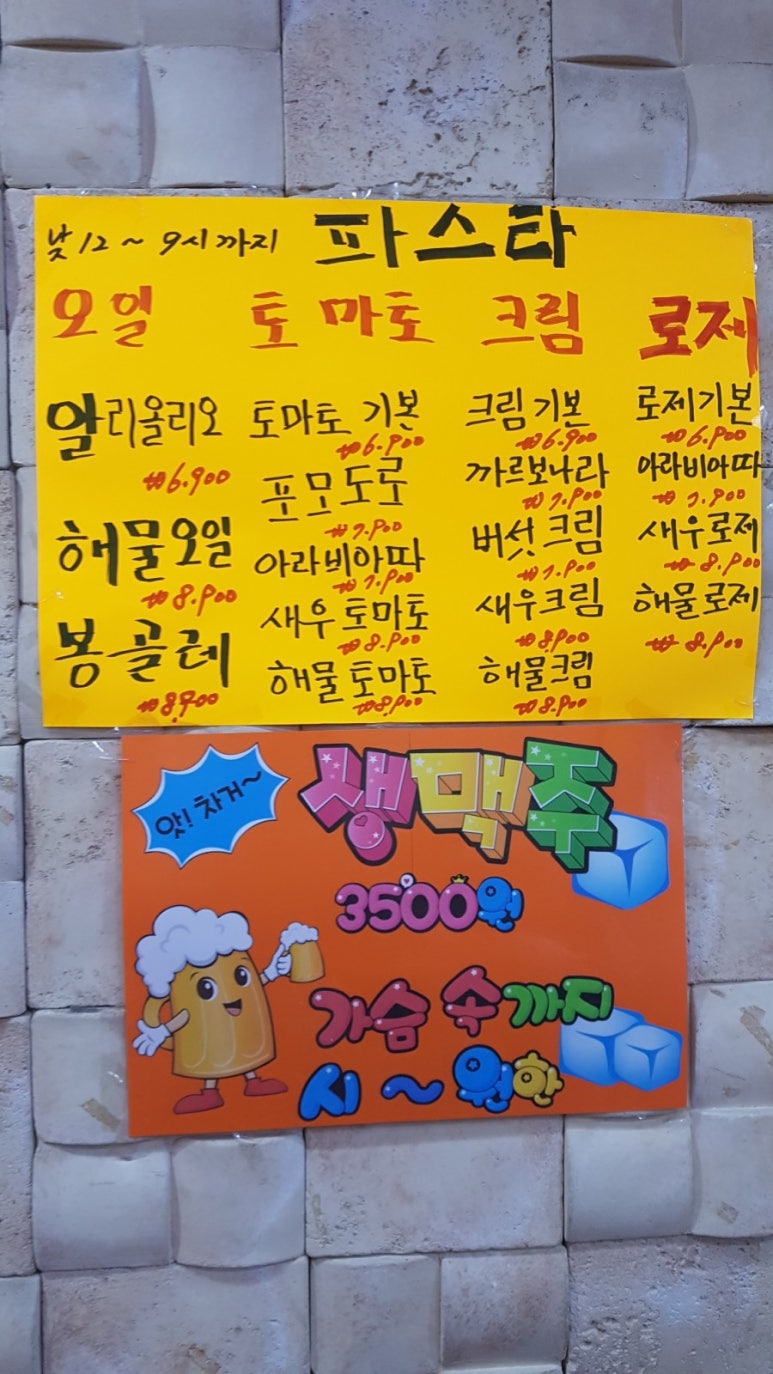 낮 12 ~ 9시까지 파스타
오일 토마토 크림 로제
알리올리오 토마토 기본 크림기본 로제기본
₩6.900 ₩6.900 ₩6.900 ₩6.900
포모도로 까르보나라 아라비아따
₩7.900 ₩7.900 ₩7.900
해물오일 아라비아따 버섯크림 새우로제
₩8.900 ₩7.900 ₩7.900 ₩8.900
봉골레 새우토마토 새우크림 해물로제
₩8.900 ₩8.900 ₩8.900 ₩8.900
해물토마토 해물크림
₩8.900 ₩8.900
앗! 차거~
생맥주
3500원
가슴 속까지
시 ~ 원한